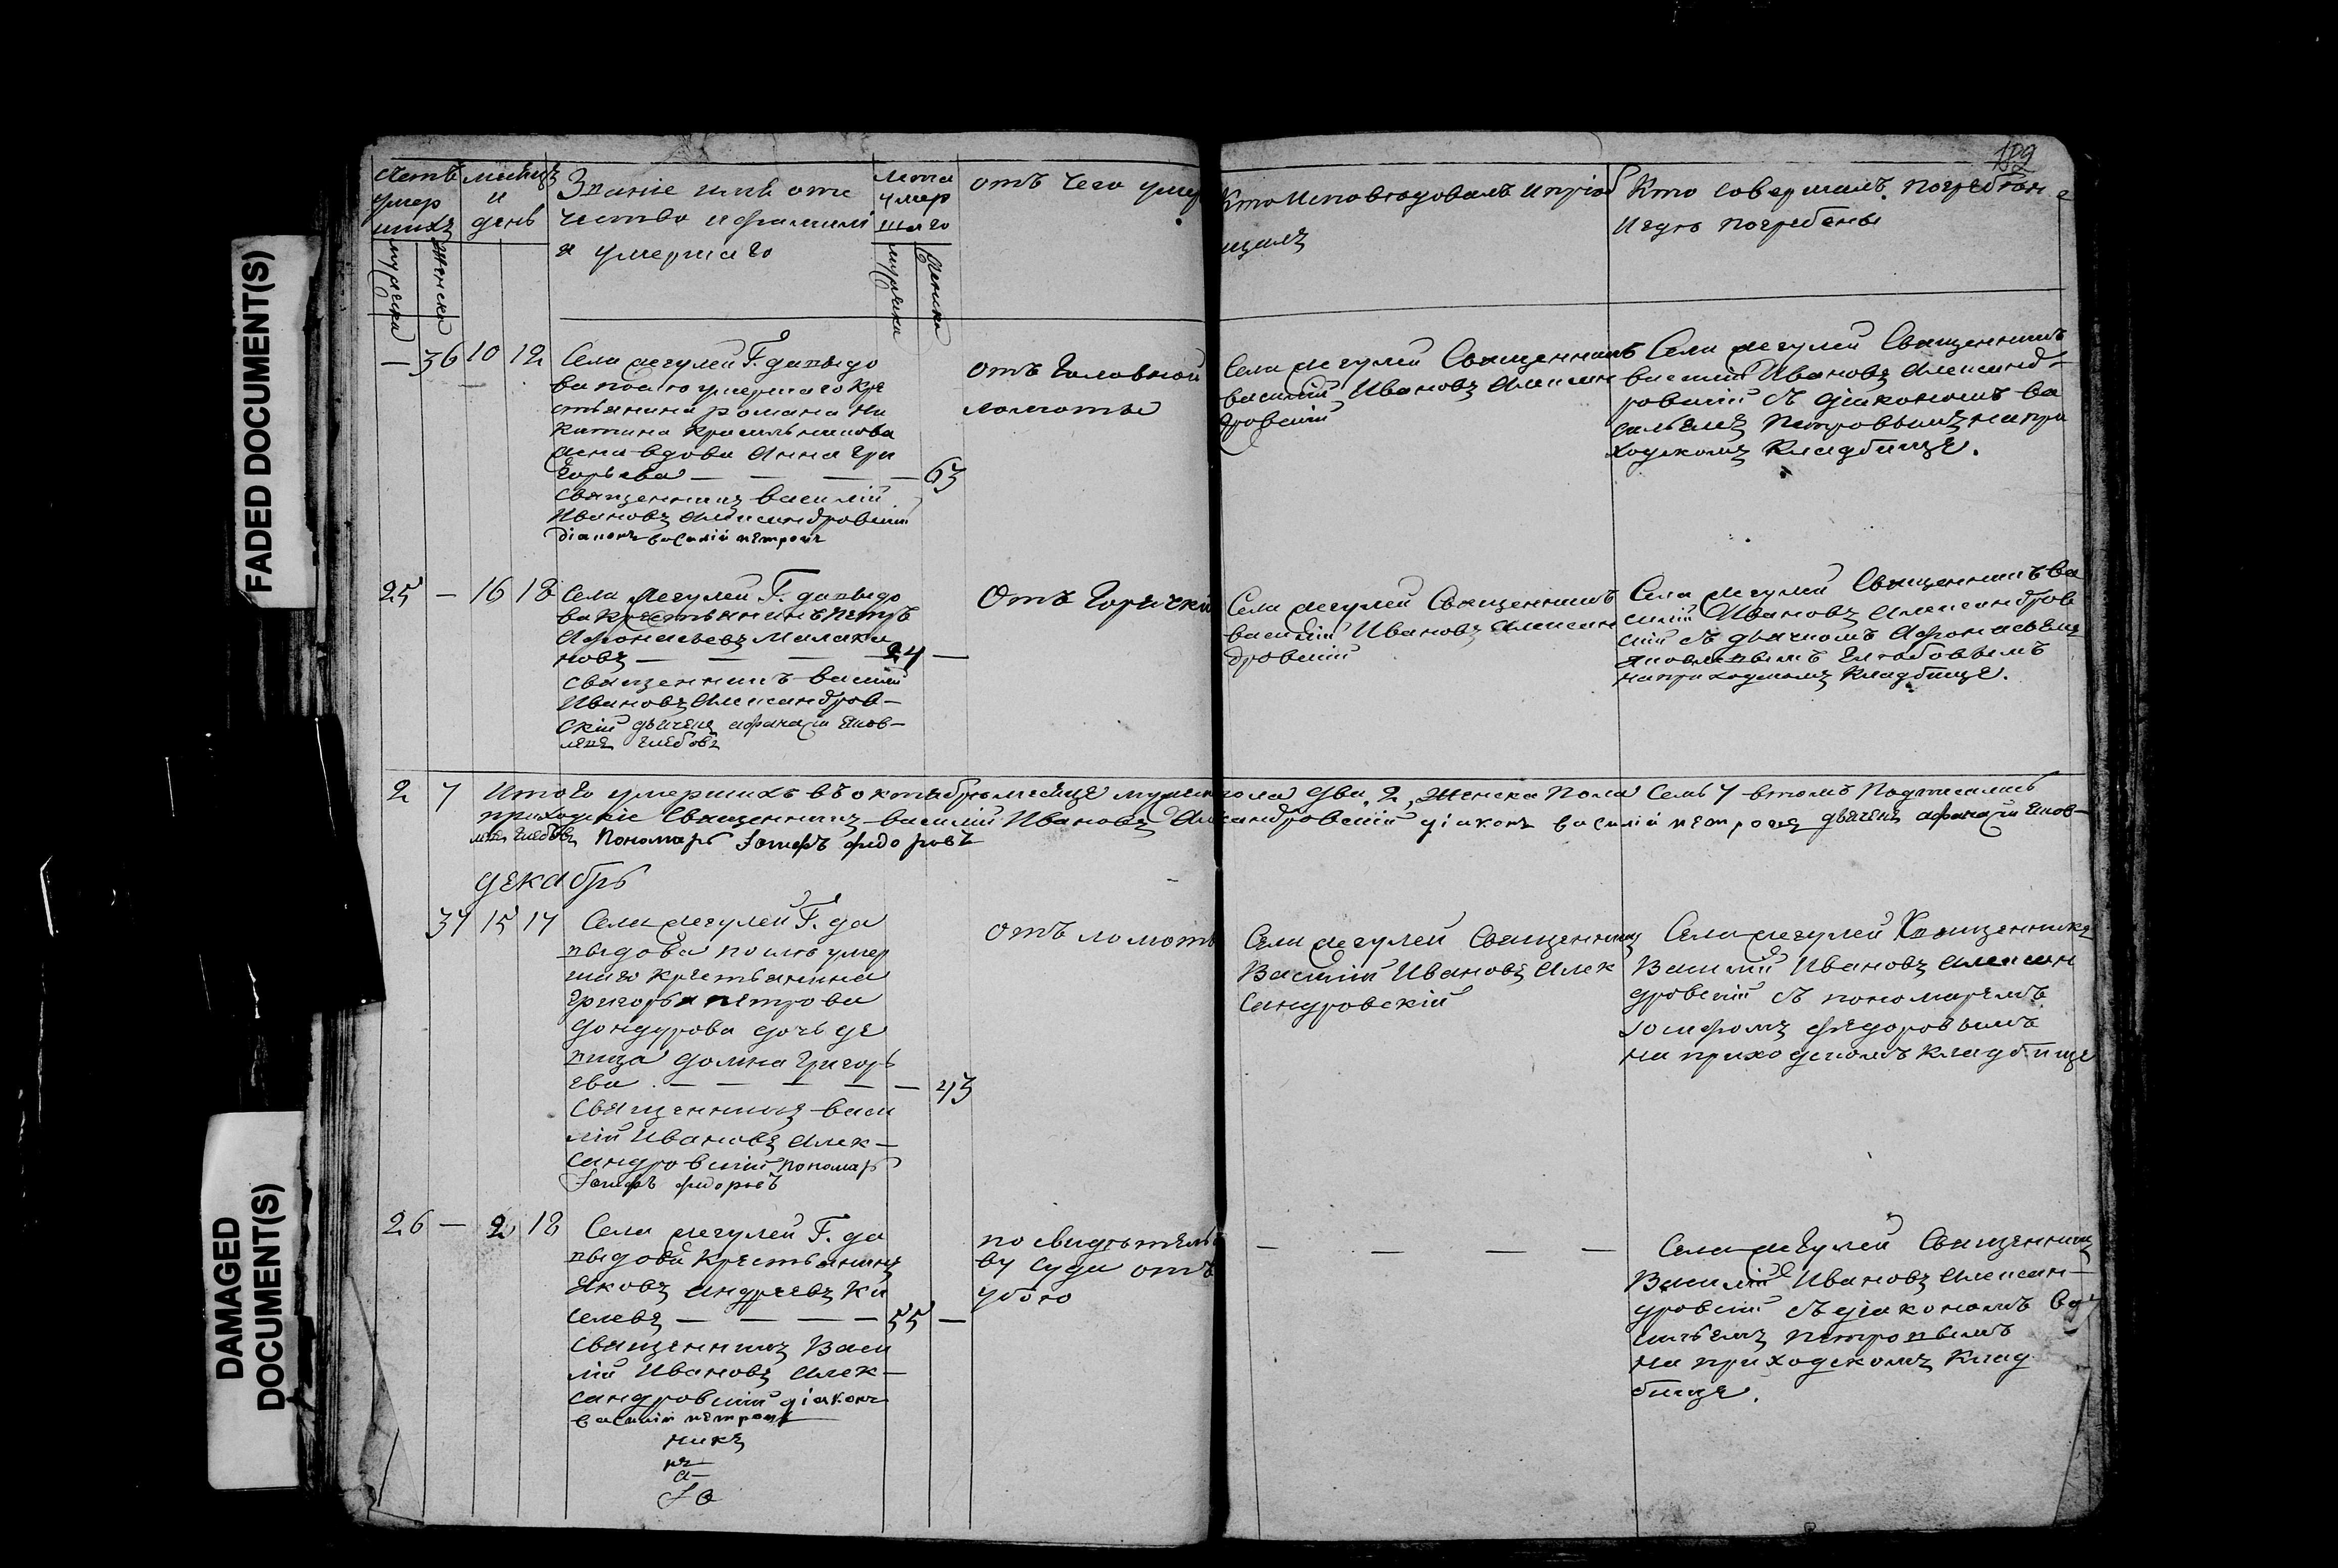 FADED DOCUMENT(S)
DAMAGED
DOCUMENT(S)
Счетъ
умер
шихъ
мужеска
женска
месяцъ
и
день
Званіе имя оте
чество и фамилі
я умершаго
лета
умер
шаго
мужска
женска
отъ чего умер
Кто исповедовалъ и пріоб
щалъ
Кто совершалъ погребеніе
и где погребены
— 36 10 12
Села Легулей Г. давыдо
ва после умершаго кре
стьянина романа Ни
китина красильникова
жена вдова Анна Гри
горьева — — — — 63
священникъ василій
Ивановъ Александровскій
діаконъ василій петровъ
отъ головной
ломоты
Села Легулей Священникъ
василій Ивановъ Алексан
дровскій
Села Легулей Священникъ
василій Ивановъ Александ-
ровскій съ діакономъ Ва
сильемъ Петровымъ на при
ходскомъ кладбище.
25 — 16 18
Села Легулей Г. давыдо
ва крестьянинъ петръ
Афонасьевъ Малаха
новъ — — — 24 —
священникъ василій
Ивановъ Александров-
скій дьячекъ афанасій яков-
левъ глебовъ
Отъ горячки
Села Легулей Священникъ
василій Ивановъ Алексан
дровскій
Села Легулей Священникъ Ва
силій Ивановъ Александров
скій съ дьячкомъ Афонасьемъ
яковлевымъ Глебовымъ
на приходскомъ кладбище.
2 7 Итого умершихъ въ октябре месяце мужеска пола два, 2, женска пола семь 7 в томъ подписались
приходскіе Священникъ василій Ивановъ Александровскій діаконъ василій петровъ дьячекъ афанасій яков-
левъ глебовъ Пономарь Іосифъ федоровъ
декабрь
37 15 17
Села Легулей Г. да
выдова после умер
шаго крестьянина
григорья петрова
дондурова дочь де
вица домна григорь
ева. — — — — — 43
священникъ васи
лій Ивановъ Алек-
сандровскій пономарь
Іосифъ федоровъ
отъ ломоты
Села Легулей Священникъ
Василій Ивановъ Алек
сандровскій
Села Легулей Священникъ
Василій Ивановъ Алексан
дровскій съ пономаремъ
Іосифомъ федоровымъ
на приходскомъ кладбище
26 — 2 18
Села Легулей Г. да
выдова крестьянинъ
яковъ андреевъ Ки
селевъ — — — — 55 —
священникъ Васи
лій Ивановъ Алек-
сандровскій діаконъ
василій петровъ
никъ
по свидетельст
ву суда отъ
убою
— — — —
Села Легулей Священникъ
Василій Ивановъ Алексан-
дровскій съ діакономъ ва
сильемъ петровымъ
на приходскомъ клад
бище.